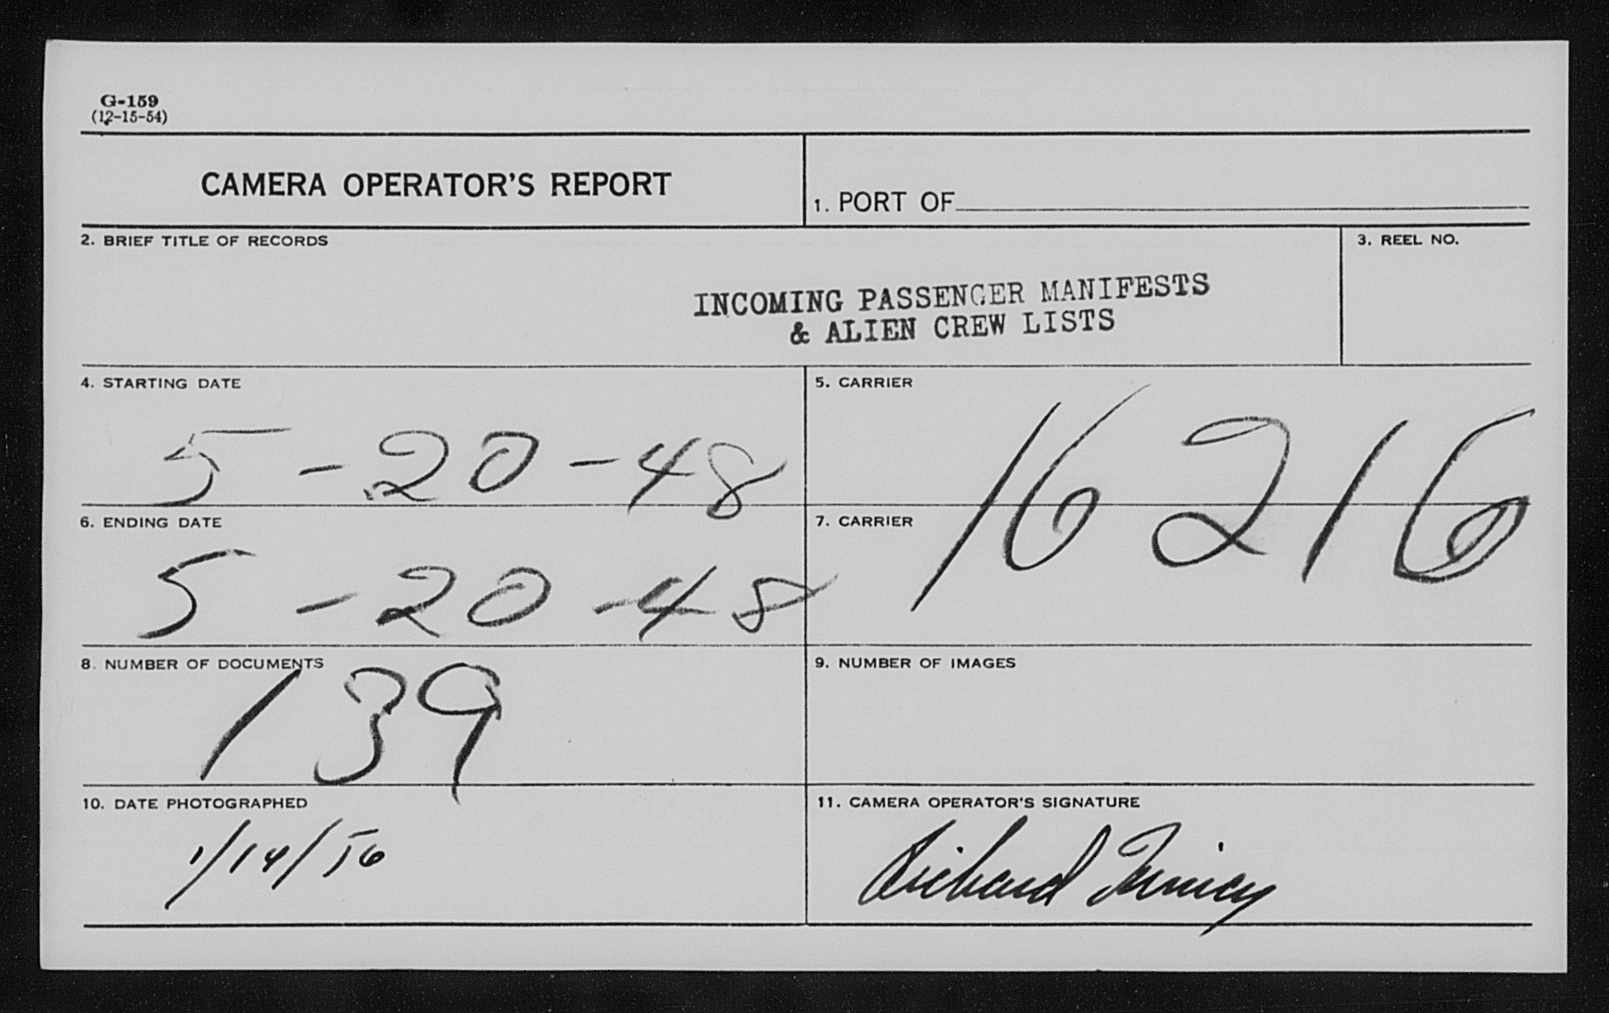 G-159
(12-15-54)
CAMERA OPERATOR'S REPORT
1. PORT OF
2. BRIEF TITLE OF RECORDS
3. REEL NO.
INCOMING PASSENGER MANIFESTS
& ALIEN CREW LISTS
4. STARTING DATE
5-20-48
5. CARRIER
16216
6. ENDING DATE
5-20-48
7. CARRIER
8. NUMBER OF DOCUMENTS
139
9. NUMBER OF IMAGES
10. DATE PHOTOGRAPHED
1/14/56
11. CAMERA OPERATOR'S SIGNATURE
Richard